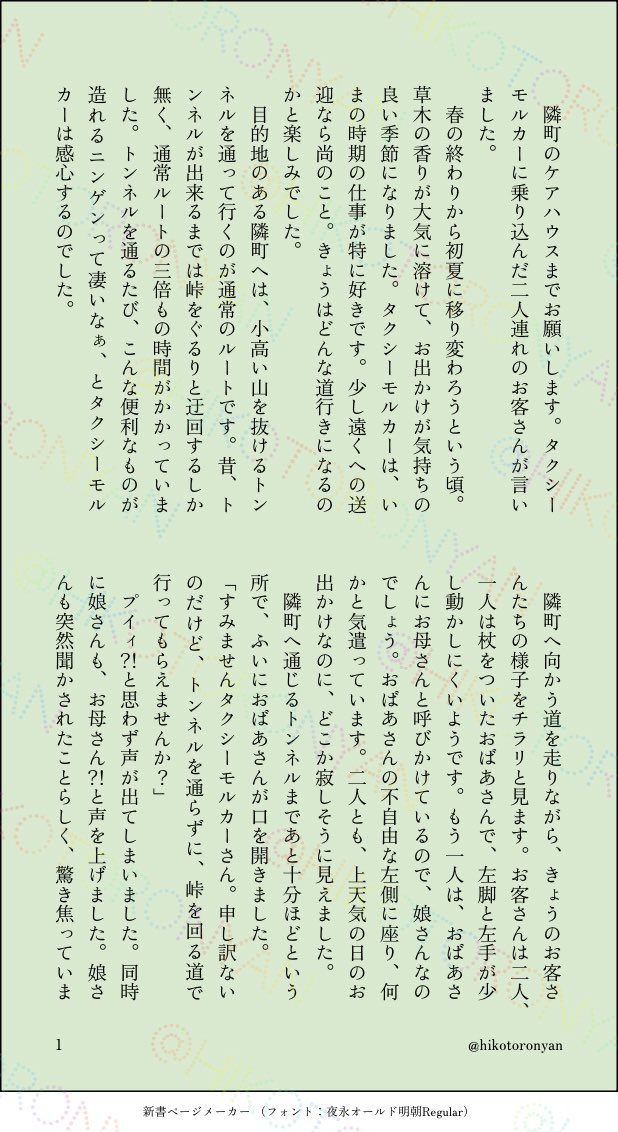 隣町のケアハウスまでお願いします。タクシー
モルカーに乗り込んだ二人連れのお客さんが言い
ました。
春の終わりから初夏に移り変わろうという頃。
草木の香りが大気に溶けて、お出かけが気持ちの
良い季節になりました。タクシーモルカーは、い
まの時期の仕事が特に好きです。少し遠くへの送
迎なら尚のこと。きょうはどんな道行きになるの
かと楽しみでした。
目的地のある隣町へは、小高い山を抜けるトン
ネルを通って行くのが通常のルートです。昔、ト
ンネルが出来るまでは峠をぐるりと迂回するしか
無く、通常ルートの三倍もの時間がかかっていま
した。トンネルを通るたび、こんな便利なものが
造れるニンゲンって凄いなぁ、とタクシーモル
カーは感心するのでした。
隣町へ向かう道を走りながら、きょうのお客さ
んたちの様子をチラリと見ます。お客さんは二人、
一人は杖をついたおばあさんで、左脚と左手が少
し動かしにくいようです。もう一人は、おばあさ
んにお母さんと呼びかけているので、娘さんなの
でしょう。おばあさんの不自由な左側に座り、何
かと気遣っています。二人とも、上天気の日のお
出かけなのに、どこか寂しそうに見えました。
隣町へ通じるトンネルまであと十分ほどという
所で、ふいにおばあさんが口を開きました。
「すみませんタクシーモルカーさん。申し訳ない
のだけど、トンネルを通らずに、峠を回る道で
行ってもらえませんか？」
プイィ⁈と思わず声が出てしまいました。同時
に娘さんも、お母さん⁈と声を上げました。娘さ
んも突然聞かされたことらしく、驚き焦っていま
1
@hikotoronyan
新書ページメーカー（フォント：夜永オールド明朝Regular）
@HIKOTORONYAN